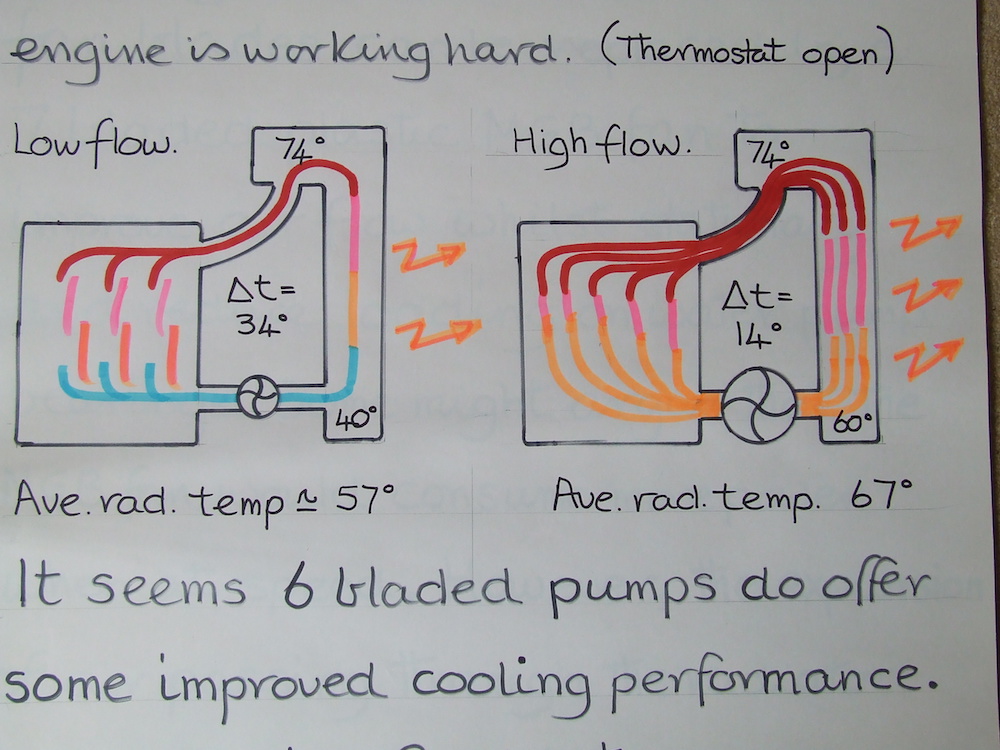 engine is working hard. (Thermostat open)
Low flow.
74°
Δt=
34°
40°
Ave. rad. temp ≃ 57°
High flow.
74°
Δt=
14°
60°
Ave. rad. temp. 67°
It seems 6 bladed pumps do offer
some improved cooling performance.